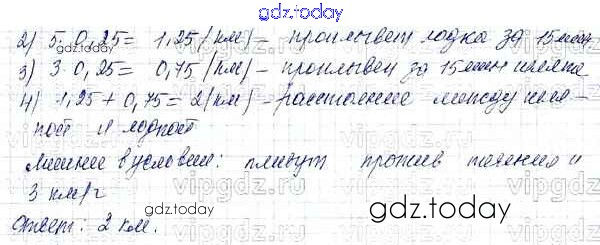 gdz.today
2) 5 · 0,25 = 1,25 (км) – проплывет лодка за 15 мин
3) 3 · 0,25 = 0,75 (км) – проплывет за 15 мин шляпа
4) 1,25 + 0,75 = 2 (км) – расстояние между шля-
пой и лодкой
Лишнее в условии: плывут против течения и
3 км/ч
Ответ: 2 км.
gdz.today
gdz.today
vipgdz.ru